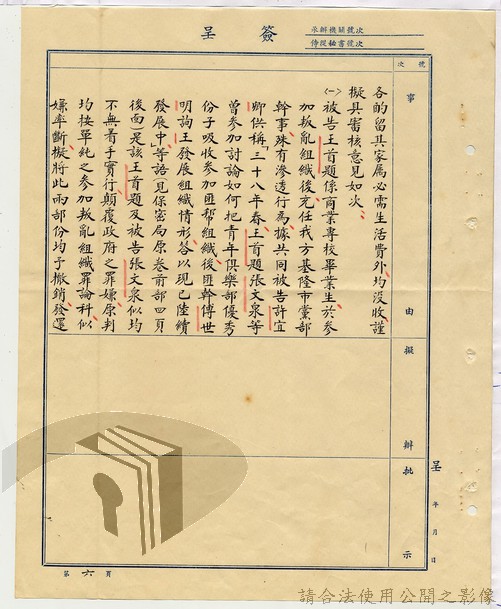 簽呈
承辦機關號次
侍從秘書號次
號次
事由
擬辦
批示
各酌留其家屬必需生活費外、均沒收謹
擬具審核意見如次、
㈠被告王首題係商業專校畢業生、於參
加叛亂組織後、充任我方基隆市黨部
幹事、殊有滲透行為、據共同被告許宜
卿供稱「三十八年春、王首題張文泉等
曾參加討論如何把青年俱樂部優秀
份子吸收參加匪幫組織後、匪幹傅世
明詢王發展組織情形、答以現已陸續
發展中」等語（見保密局原卷前部四頁
後面）是該王首題及被告張文泉似均
不無着手實行顛覆政府之罪嫌、原判
均按單純之參加叛亂組織罪論科、似
嫌率斷、擬將此兩部份均予撤銷發還
呈
年月日
第六頁
請合法使用公開之影像